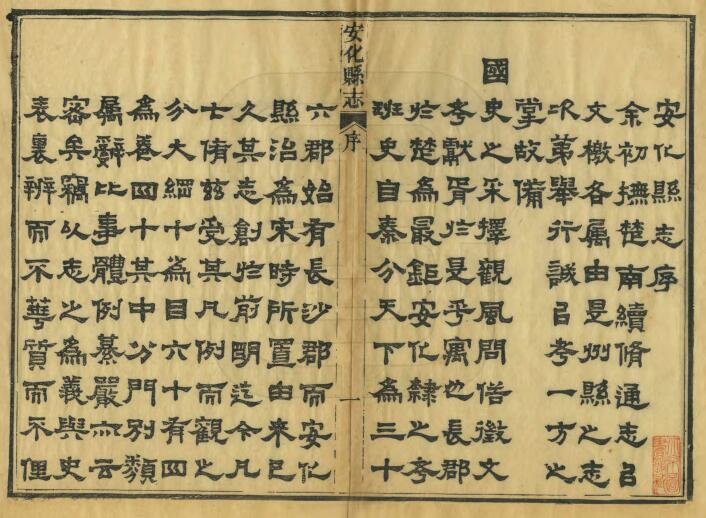 安化縣志序
余初撫楚南續脩通志㠯
文檄各属由是州縣之志
次第舉行誠㠯考一方之
掌故備
國史之采擇觀風問俗徵文
考獻胥於是乎寓也長郡
於楚為最鉅安化隸之考
班史自秦分天下為三十
安化縣志
序
一
六郡始有長沙郡而安化
縣治為宋時所置由來已
久其志創於前明迄今凡
七脩茲受其凡例而觀之
分大綱十為目六十有四
為卷四十其中分門別類
属辭比事體例綦嚴亦云
密矣竊以志之為義與史
表裏辨而不華質而不俚